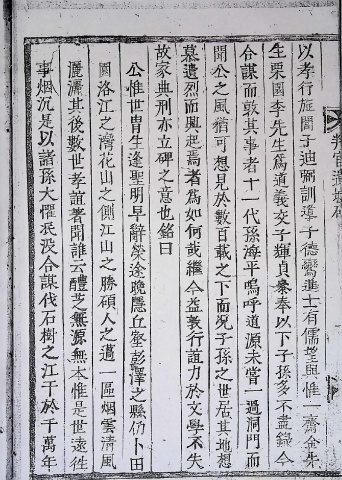 以孝行旌閭子迪弼訓導子德鸞進士有儒望與惟一齋金先
生栗園李先生爲道義交子輝貞參奉以下子孫多不盡錄今
合謀而敦其事者十一代孫海平嗚呼道源未嘗一過洞門而
聞公之風猶可想見於數百載之下而況子孫之世居其地想
慕遺烈而興起焉者爲如何哉繼今益敦行誼力於文學不失
故家典刑亦立碑之意也銘曰
公惟世胄生逢聖明早辭榮途晩隱丘壑彭澤之縣仍卜田
園洛江之灣花山之側江山之勝碩人之薖一區烟雲清風
灑灑其後數世孝誼著聞誰云醴芝無源無本惟是世遠徃
事烟沉是以諸孫大懼泯沒合謀伐石樹之江干於千萬年